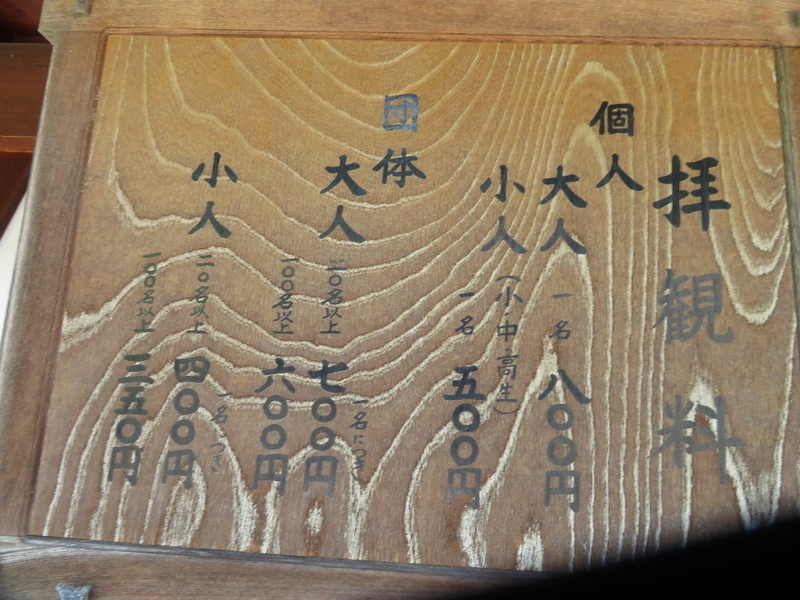 拝観料
個人
大人 一名 八〇〇円
小人(小・中・高生)
一名 五〇〇円
団体
一名につき
大人 二〇名以上 七〇〇円
一〇〇名以上 六〇〇円
一名につき
小人 二〇名以上 四〇〇円
一〇〇名以上 三五〇円